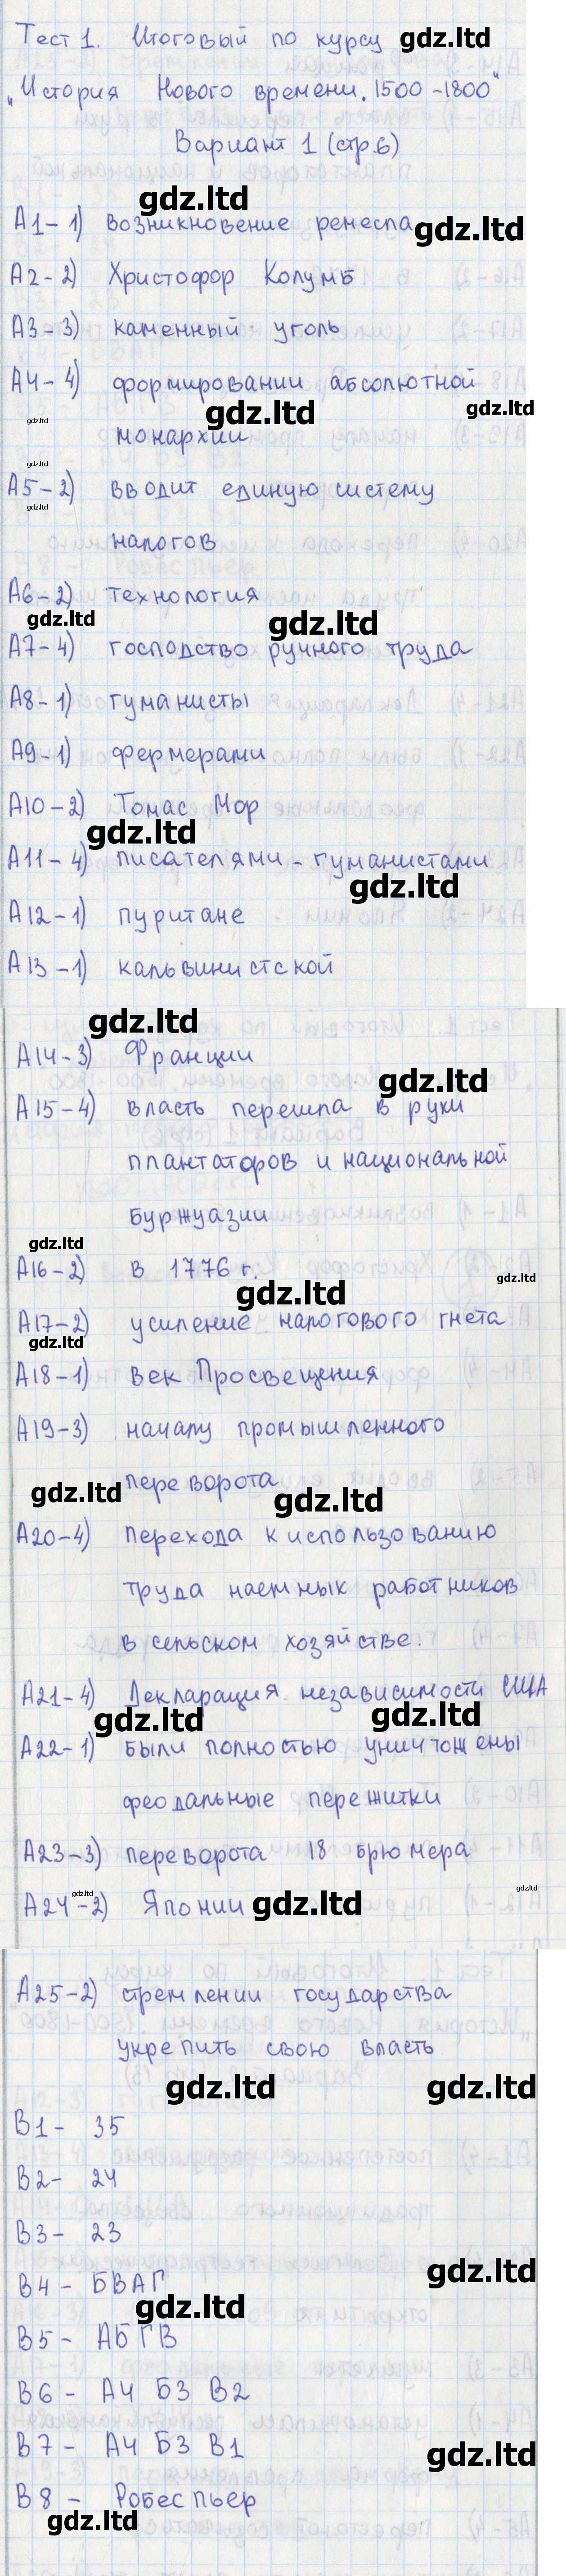 Тест 1. Итоговый по курсу gdz.ltd
"История Нового времени. 1500-1800"
Вариант 1 (стр.6)
gdz.ltd
А1-1) возникновение ремесла gdz.ltd
А2-2) Христофор Колумб
А3-3) каменный уголь
А4-4) формировании абсолютной
gdz.ltd gdz.ltd gdz.ltd
монархии
gdz.ltd
А5-2) вводит единую систему
gdz.ltd
налогов
А6-2) технология
gdz.ltd gdz.ltd
А7-4) господство ручного труда
А8-1) гуманисты
А9-1) фермерами
А10-2) Томас Мор
gdz.ltd
А11-4) писателями-гуманистами
gdz.ltd
А12-1) пуритане
А13-1) кальвинистской
gdz.ltd
А14-3) Франции
gdz.ltd
А15-4) власть перешла в руки
плантаторов и национальной
буржуазии
gdz.ltd
А16-2) в 1776 г.
gdz.ltd gdz.ltd
А17-2) усиление налогового гнета
gdz.ltd
А18-1) век Просвещения
А19-3) началу промышленного
переворота
gdz.ltd gdz.ltd
А20-4) перехода к использованию
труда наемных работников
в сельском хозяйстве.
А21-4) Декларация независимости США
gdz.ltd gdz.ltd
А22-1) были полностью уничтожены
феодальные пережитки
А23-3) переворота 18 брюмера
gdz.ltd gdz.ltd
А24-2) Японии gdz.ltd
А25-2) стремлении государства
укрепить свою власть
gdz.ltd gdz.ltd
В1- 35
В2- 24
В3- 23
gdz.ltd
В4- БВАГ
gdz.ltd
В5- АБГВ
В6- А4 Б3 В2
В7- А4 Б3 В1
gdz.ltd
В8- Робеспьер
gdz.ltd